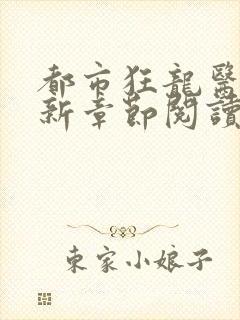 都市狂龍醫
新章節閱讀
東家小娘子